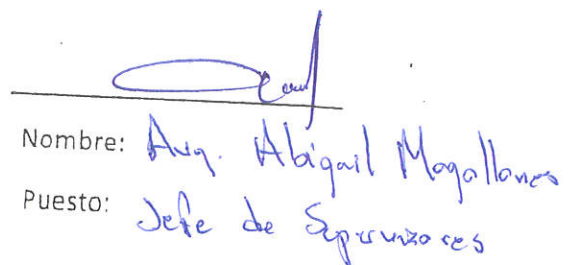 Nombre: Arq. Abigail Magallanes
Puesto: Jefe de Supervizores